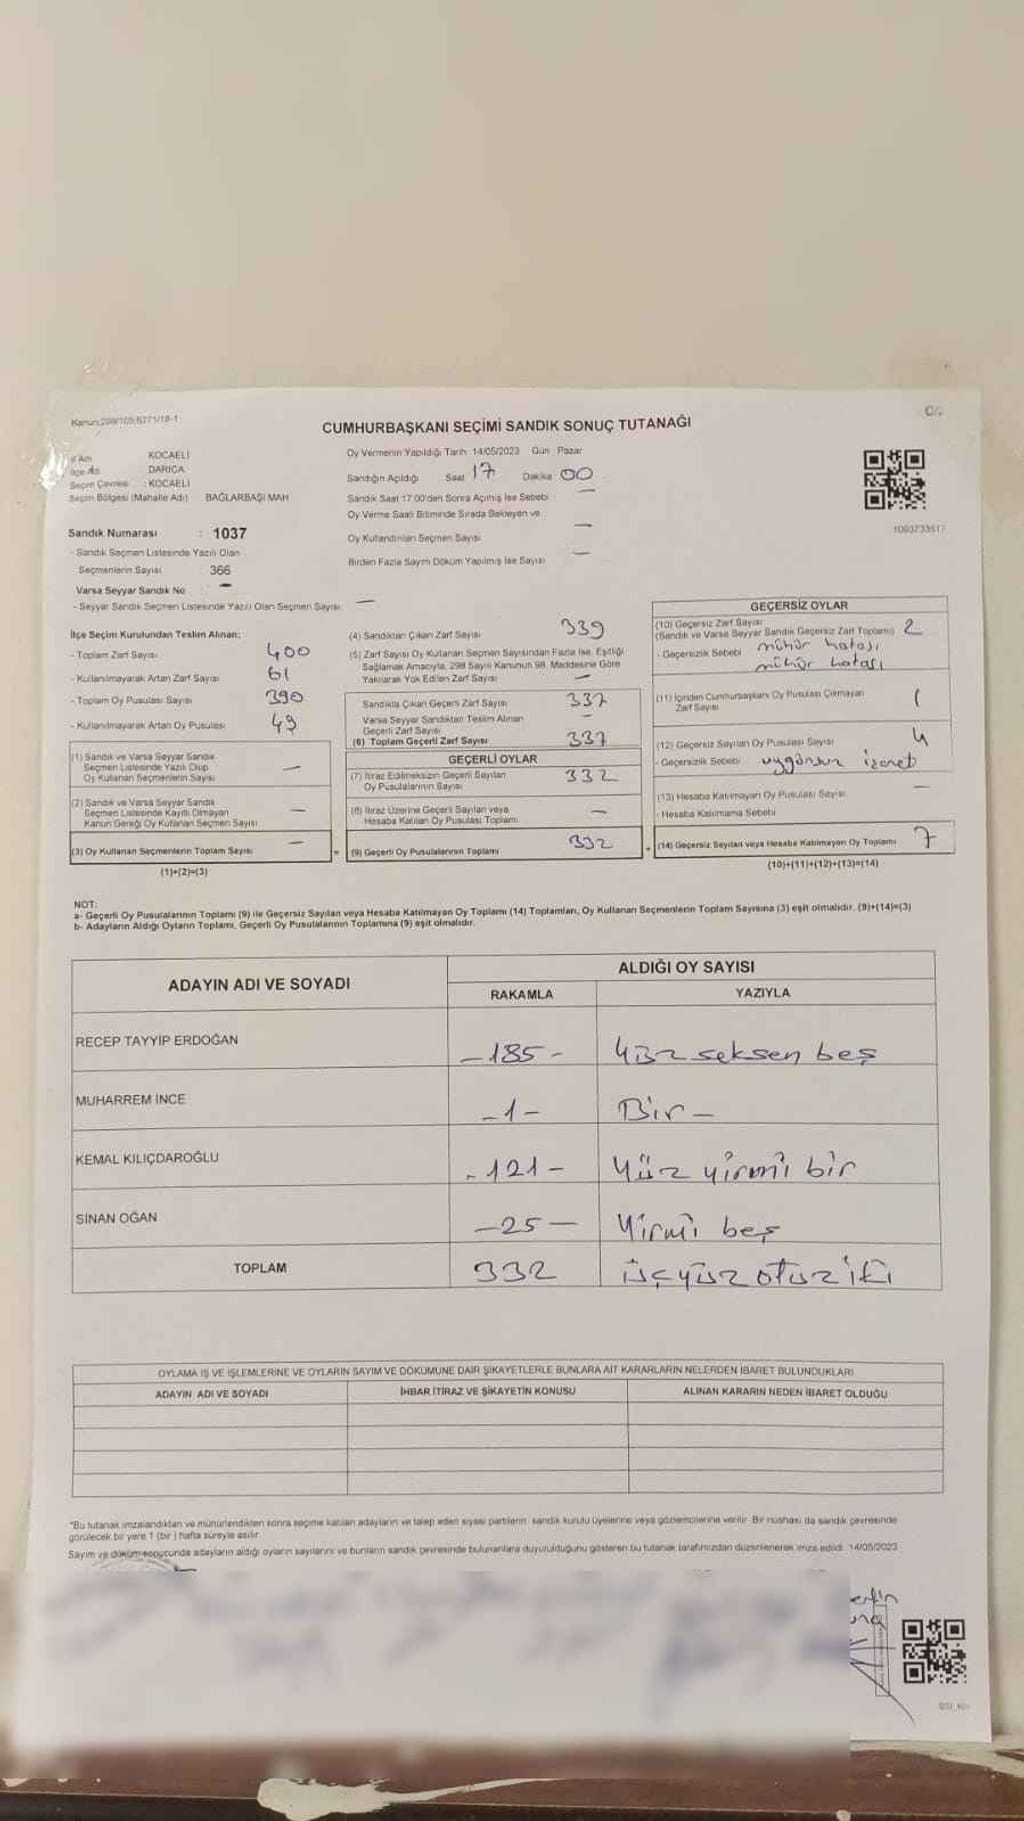 Kanun:298/105,6271/18-1
C/2
CUMHURBAŞKANI SEÇİMİ SANDIK SONUÇ TUTANAĞI
İl Adı KOCAELİ
İlçe Adı DARICA
Seçim Çevresi : KOCAELİ
Seçim Bölgesi (Mahalle Adı) BAĞLARBAŞI MAH
Oy Vermenin Yapıldığı Tarih 14/05/2023 Gün Pazar
Sandığın Açıldığı Saat 17 Dakika 00
Sandık Saat 17:00'den Sonra Açılmış İse Sebebi —
Oy Verme Saati Bitiminde Sırada Bekleyen ve
Oy Kullandırılan Seçmen Sayısı —
Birden Fazla Sayım Döküm Yapılmış İse Sayısı —
Sandık Numarası : 1037
- Sandık Seçmen Listesinde Yazılı Olan
Seçmenlerin Sayısı 366
Varsa Seyyar Sandık No —
- Seyyar Sandık Seçmen Listesinde Yazılı Olan Seçmen Sayısı —
İlçe Seçim Kurulundan Teslim Alınan;
- Toplam Zarf Sayısı 400
- Kullanılmayarak Artan Zarf Sayısı 61
- Toplam Oy Pusulası Sayısı 390
- Kullanılmayarak Artan Oy Pusulası 49
(1) Sandık ve Varsa Seyyar Sandık
Seçmen Listesinde Yazılı Olup
Oy Kullanan Seçmenlerin Sayısı —
(2) Sandık ve Varsa Seyyar Sandık
Seçmen Listesinde Kayıtlı Olmayan
Kanun Gereği Oy Kullanan Seçmen Sayısı —
(3) Oy Kullanan Seçmenlerin Toplam Sayısı —
(1)+(2)=(3)
(4) Sandıktan Çıkan Zarf Sayısı 339
(5) Zarf Sayısı Oy Kullanan Seçmen Sayısından Fazla İse, Eşitliği
Sağlamak Amacıyla, 298 Sayılı Kanunun 98. Maddesine Göre
Yakılarak Yok Edilen Zarf Sayısı —
Sandıkta Çıkan Geçerli Zarf Sayısı 337
Varsa Seyyar Sandıktan Teslim Alınan
Geçerli Zarf Sayısı —
(6) Toplam Geçerli Zarf Sayısı 337
GEÇERLİ OYLAR
(7) İtiraz Edilmeksizin Geçerli Sayılan
Oy Pusulalarının Sayısı 332
(8) İtiraz Üzerine Geçerli Sayılan veya
Hesaba Katılan Oy Pusulası Toplamı —
(9) Geçerli Oy Pusulalarının Toplamı 332
GEÇERSİZ OYLAR
(10) Geçersiz Zarf Sayısı
(Sandık ve Varsa Seyyar Sandık Geçersiz Zarf Toplamı) 2
- Geçersizlik Sebebi mühür hatası
mühür hatası
(11) İçinden Cumhurbaşkanı Oy Pusulası Çıkmayan
Zarf Sayısı 1
(12) Geçersiz Sayılan Oy Pusulası Sayısı 4
- Geçersizlik Sebebi uygunsuz işaret
(13) Hesaba Katılmayan Oy Pusulası Sayısı —
- Hesaba Katılmama Sebebi
(14) Geçersiz Sayılan veya Hesaba Katılmayan Oy Toplamı 7
(10)+(11)+(12)+(13)=(14)
NOT:
a- Geçerli Oy Pusulalarının Toplamı (9) ile Geçersiz Sayılan veya Hesaba Katılmayan Oy Toplamı (14) Toplamları, Oy Kullanan Seçmenlerin Toplam Sayısına (3) eşit olmalıdır. (9)+(14)=(3)
b- Adayların Aldığı Oyların Toplamı, Geçerli Oy Pusulalarının Toplamına (9) eşit olmalıdır.
ADAYIN ADI VE SOYADI
ALDIĞI OY SAYISI
RAKAMLA YAZIYLA
RECEP TAYYİP ERDOĞAN -185- Yüz seksen beş
MUHARREM İNCE -1- Bir -
KEMAL KILIÇDAROĞLU -121- Yüz yirmi bir
SİNAN OĞAN -25- Yirmi beş
TOPLAM 332 üçyüz otuz iki
OYLAMA İŞ VE İŞLEMLERİNE VE OYLARIN SAYIM VE DÖKÜMÜNE DAİR ŞİKAYETLERLE BUNLARA AİT KARARLARIN NELERDEN İBARET BULUNDUKLARI
ADAYIN ADI VE SOYADI İHBAR İTİRAZ VE ŞİKAYETİN KONUSU ALINAN KARARIN NEDEN İBARET OLDUĞU
"Bu tutanak imzalandıktan ve mühürlendikten sonra seçime katılan adayların ve talep eden siyasi partilerin sandık kurulu üyelerine veya gözlemcilerine verilir. Bir nüshası da sandık çevresinde
görülecek bir yere 1 (bir ) hafta süreyle asılır.
Sayım ve döküm sonucunda adayların aldığı oyların sayılarını ve bunların sandık çevresinde bulunanlara duyurulduğunu gösteren bu tutanak tarafımızdan düzenlenerek imza edildi. 14/05/2023